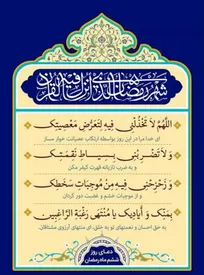 شهر رمضان الذی انزل فیه القرآن
اللَّهُمَّ لاَ تَخْذُلْنِي فِيهِ لِتَعَرُّضِ مَعْصِيَتِكَ
ای خدا مرا در این روز بواسطه ارتکاب عصیانت خوار مساز
وَ لاَ تَضْرِبْنِي بِسِيَاطِ نَقِمَتِكَ
و به ضرب تازیانه قهرت کیفر مکن
وَ زَحْزِحْنِي فِيهِ مِنْ مُوجِبَاتِ سَخَطِكَ
و از موجبات خشم و غضبت دور گردان
بِمَنِّكَ وَ أَيَادِيكَ يَا مُنْتَهَى رَغْبَةِ الرَّاغِبِينَ
به حق احسان و نعمتهای تو به خلق، ای منتهای آرزوی مشتاقان.
دعای روز
ششم ماه رمضان